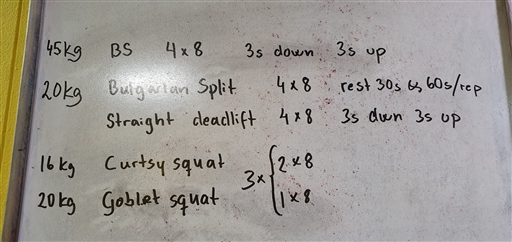 45kg BS 4x8 3s down 3s up
20kg Bulgarian Split 4x8 rest 30s 60s/rep
Straight deadlift 4x8 3s down 3s up
16kg Curtsy squat 3x { 2x8
20kg Goblet squat 1x8